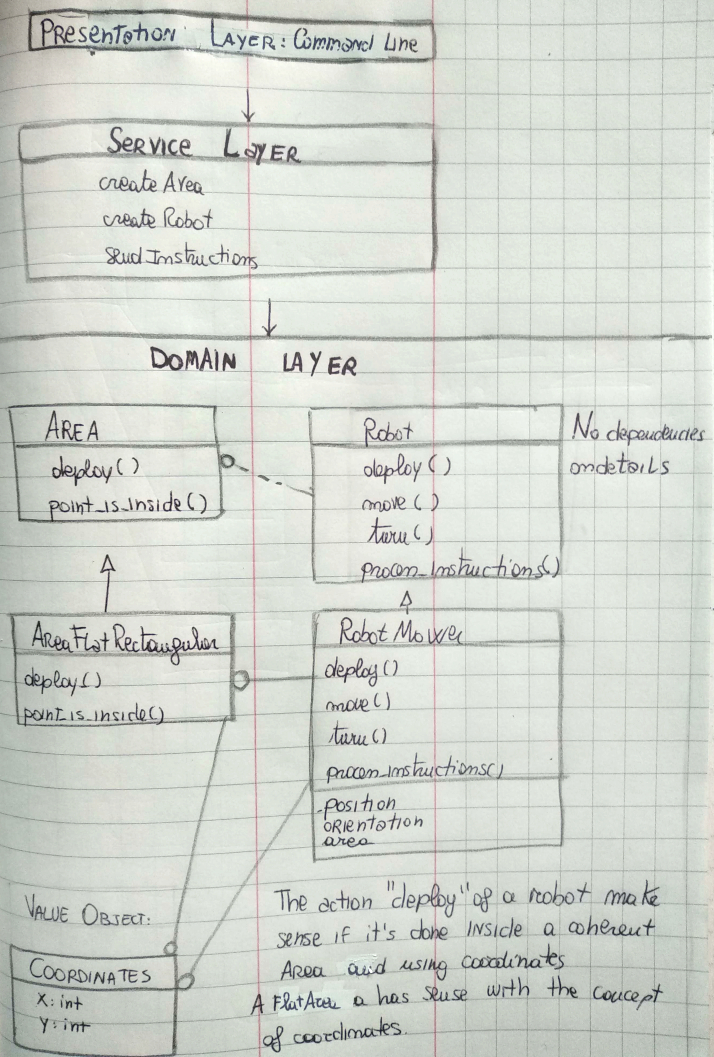 Presentation Layer: Command Line
Service Layer
create Area
create Robot
send Instructions
DOMAIN LAYER
AREA
deploy()
point_is_inside()
Robot
deploy()
move()
turn()
process_instructions()
No dependencies
on details
AreaFlatRectangular
deploy()
point_is_inside()
Robot Mower
deploy()
move()
turn()
process_instructions()
-position
orientation
area
VALUE OBJECT:
COORDINATES
X: int
Y: int
The action "deploy" of a robot make
sense if it's done inside a coherent
Area and using coordinates
A FlatArea a has sense with the concept
of coordinates.